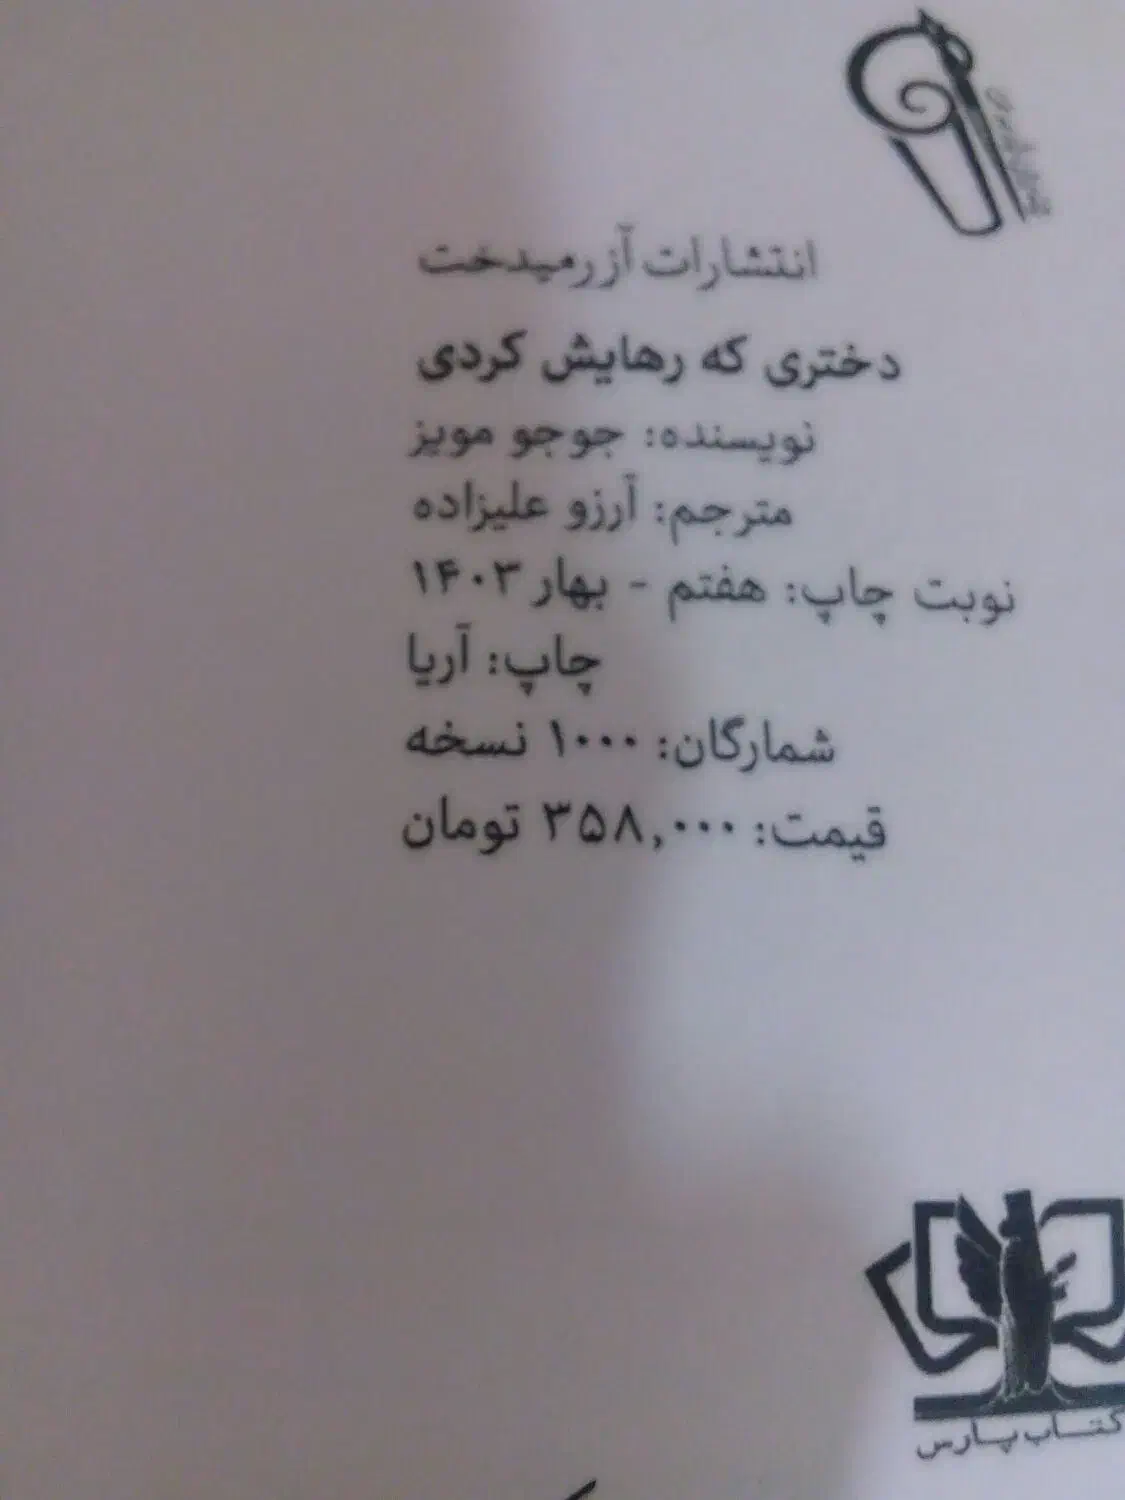 انتشارات آزرمیدخت
دختری که رهایش کردی
نویسنده: جوجو مویز
مترجم: آرزو علیزاده
نوبت چاپ: هفتم - بهار ۱۴۰۳
چاپ: آریا
شمارگان: ۱۰۰۰ نسخه
قیمت: ۳۵۸,۰۰۰ تومان
کتاب پارس